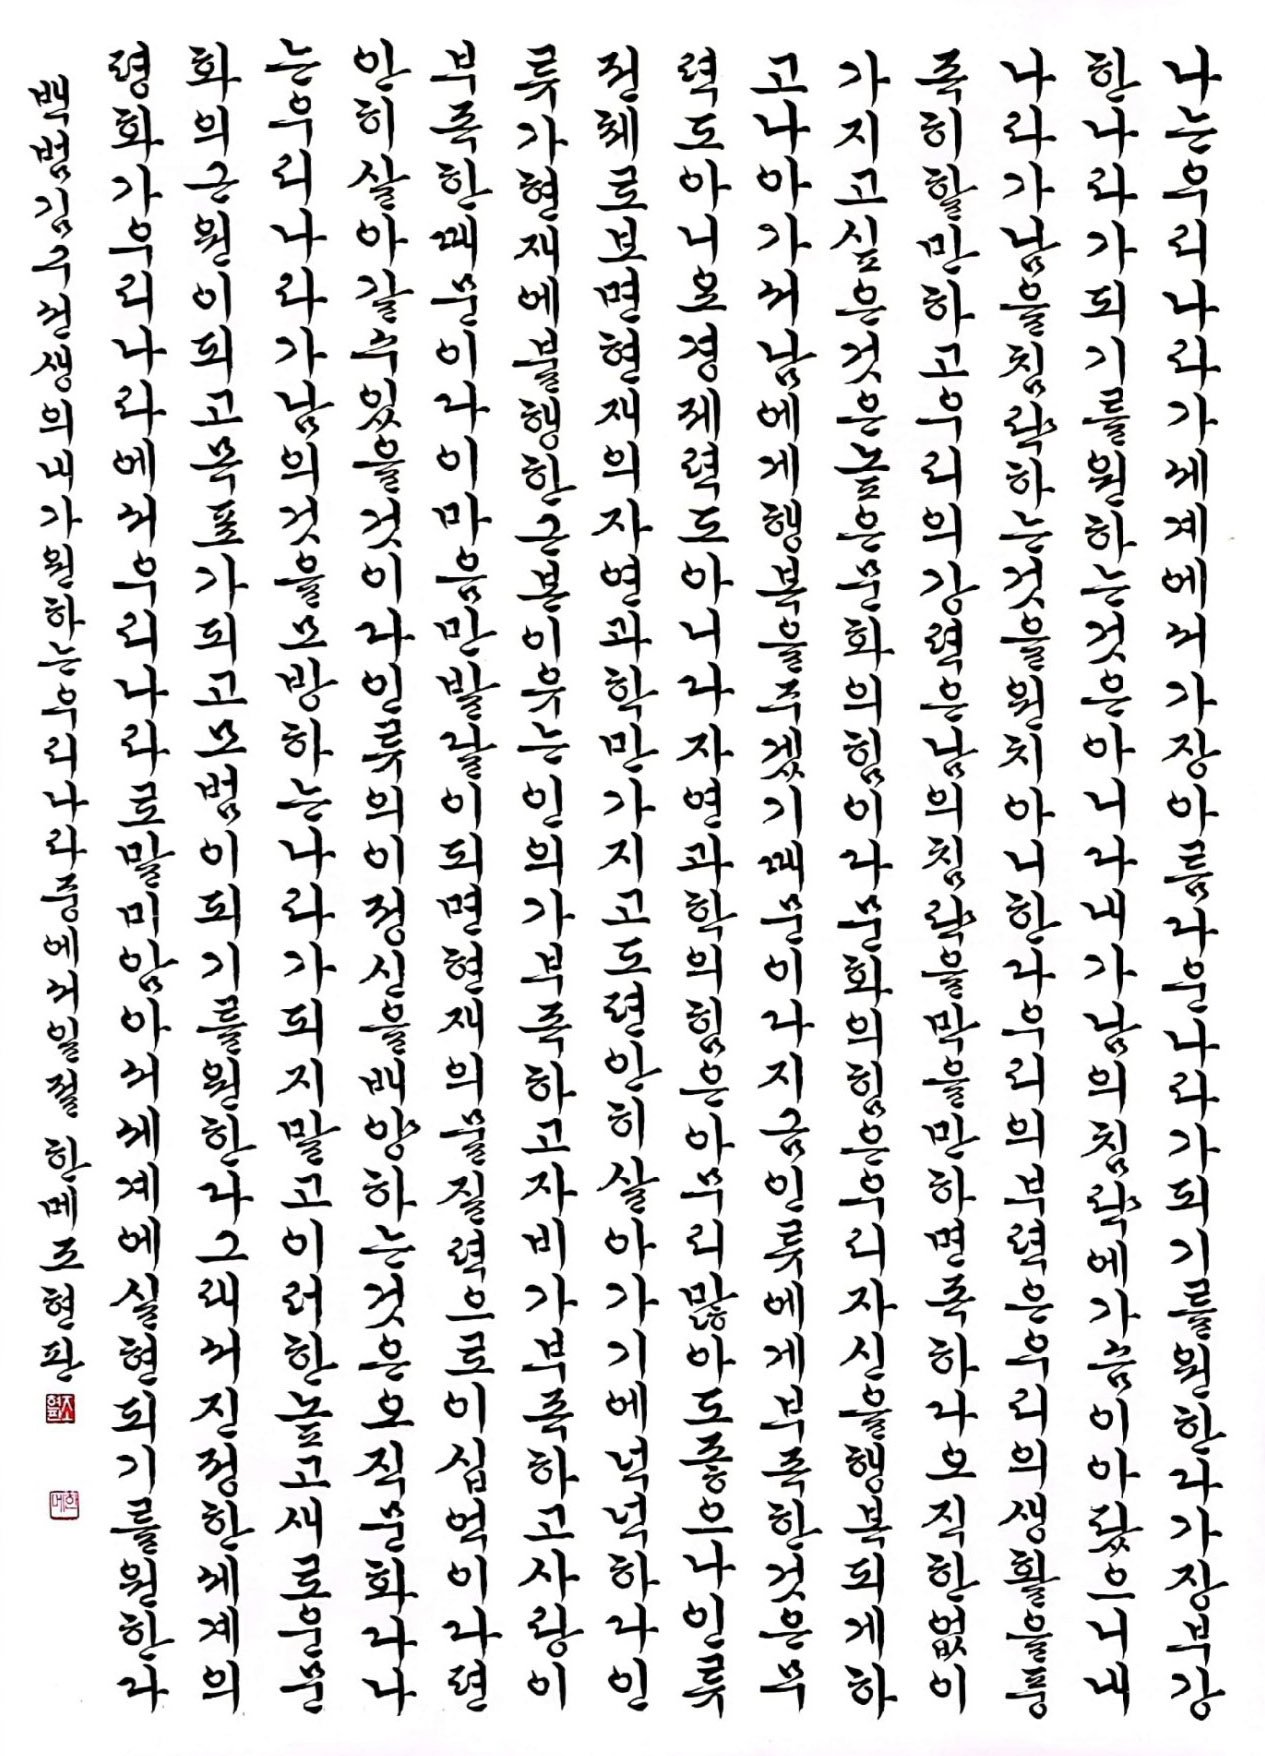 나는우리나라가세계에서가장아름다운나라가되기를원한다가장부강
한나라가되기를원하는것은아니다내가남의침략에가슴이아팠으니내
나라가남을침략하는것을원치아니한다우리의부력은우리의생활을풍
족히할만하고우리의강력은남의침략을막을만하면족하다오직한없이
가지고싶은것은높은문화의힘이다문화의힘은우리자신을행복되게하
고나아가서남에게행복을주겠기때문이다지금인류에게부족한것은무
력도아니오경제력도아니다자연과학의힘은아무리많아도좋으나인류
전체로보면현재의자연과학만가지고도편안히살아가기에넉넉하다인
류가현재에불행한근본이유는인의가부족하고자비가부족하고사랑이
부족한때문이다이마음만발달이되면현재의물질력으로이십억이다편
안히살아갈수있을것이다인류의이정신을배양하는것은오직문화다나
는우리나라가남의것을모방하는나라가되지말고이러한높고새로운문
화의근원이되고목표가되고모범이되기를원한다그래서진정한세계의
평화가우리나라에서우리나라로말미암아서세계에실현되기를원한다
백범김구선생의내가원하는우리나라중에서일절 한메조현판
한메